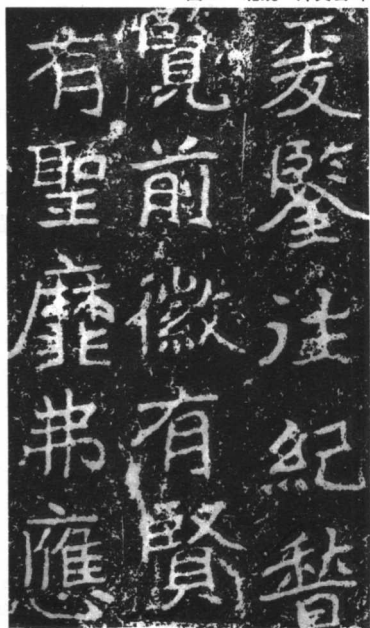 爰鑒往紀稽
覽前徽有賢
有聖靡弗應